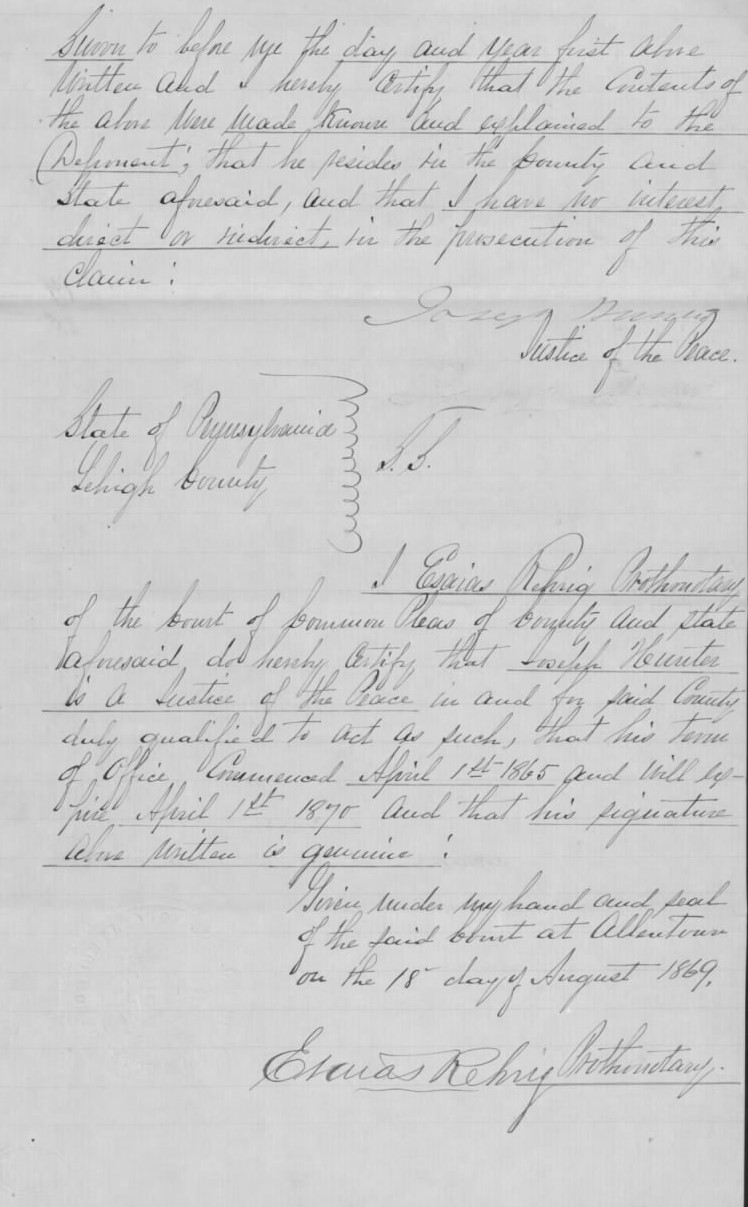 Sworn to before me the day and year first above
written and I hereby Certify that the Contents of
the above were made Known and explained to the
Deponent; that he resides in the County and
State aforesaid, and that I have no interest,
direct or indirect, in the prosecution of this
Claim:
Joseph Hunter
Justice of the Peace.
State of Pennsylvania
Lehigh County
S.S.
I Esaias Rehrig Prothonotary
of the Court of Common Pleas of County and State
aforesaid, do hereby Certify that Joseph Hunter
is a Justice of the Peace in and for said County
duly qualified to act as such, that his term
of Office, Commenced April 1st 1865 and will ex-
pire April 1st 1870 and that his signature
above written is genuine:
Given under my hand and seal
of the said Court at Allentown
on the 18 day of August 1869.
Esaias Rehrig Prothonotary.